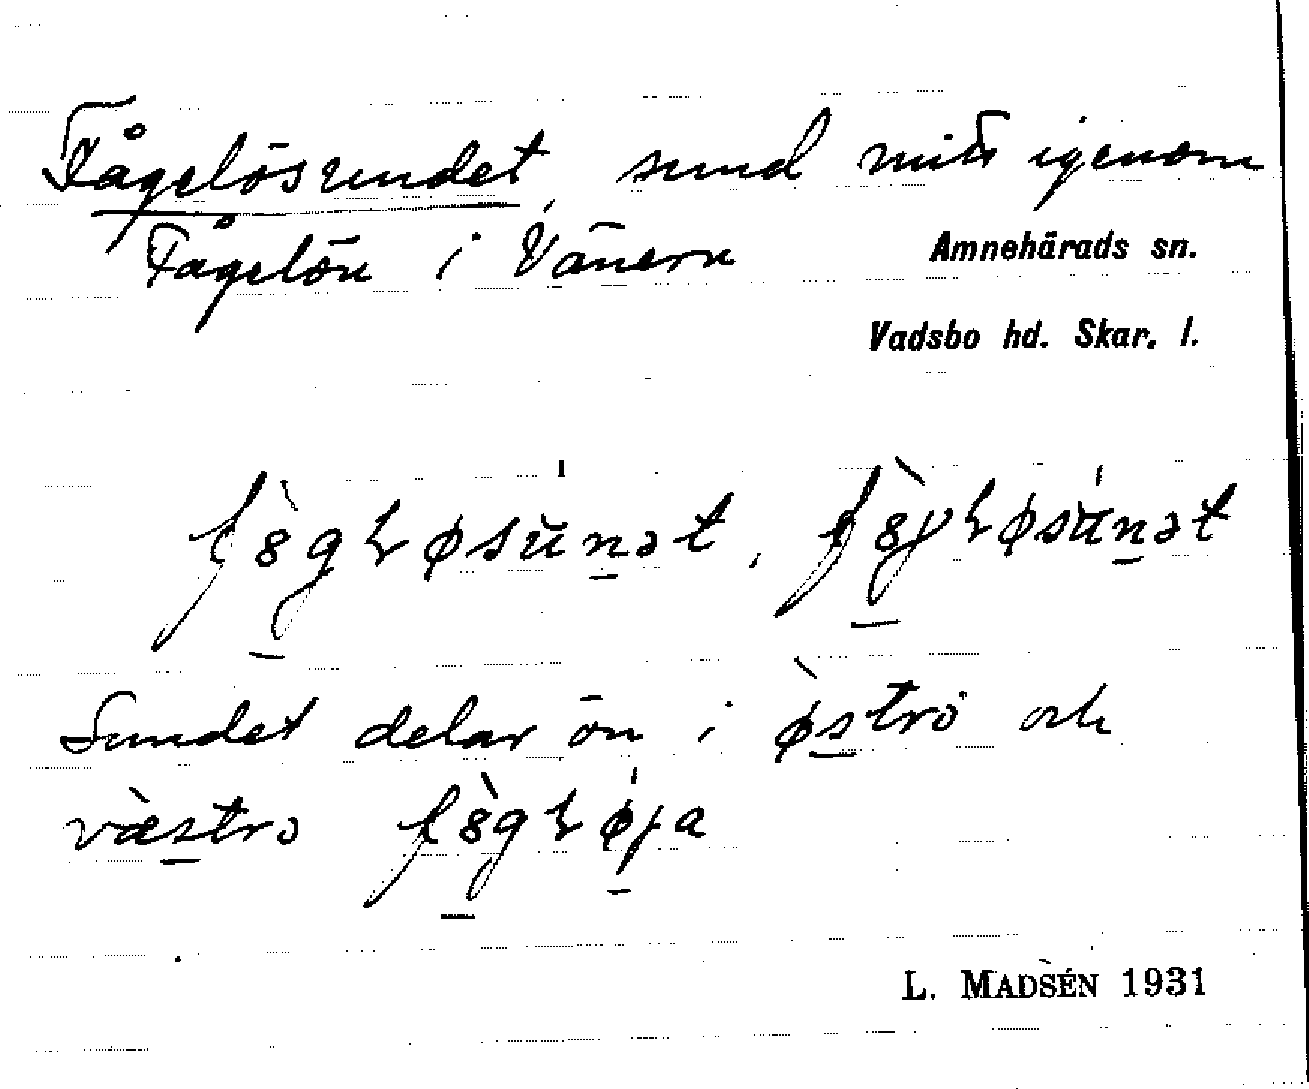 Fågelösundet, sund mitt igenom
Fågelön i Vänern
Amnehärads sn.
Vadsbo hd. Skar. l.
Sundet delar ön i øströ och
væstrə
L. MADSÉN 1931